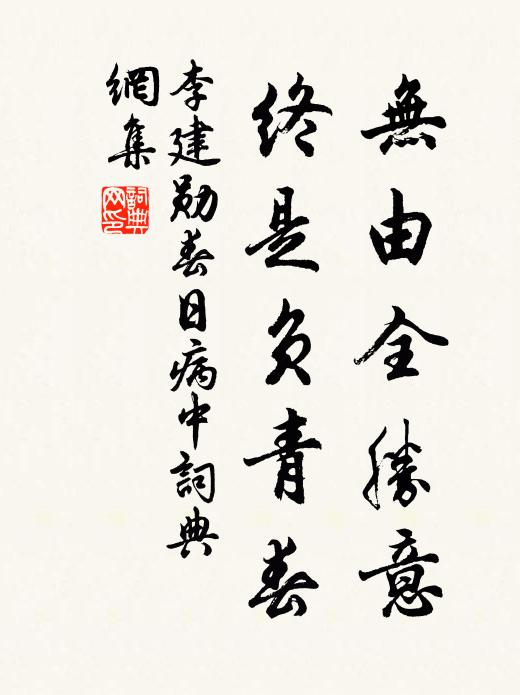 無由全勝意
終是負青春
李建勛春日病中詞典
網集
詞典
网印